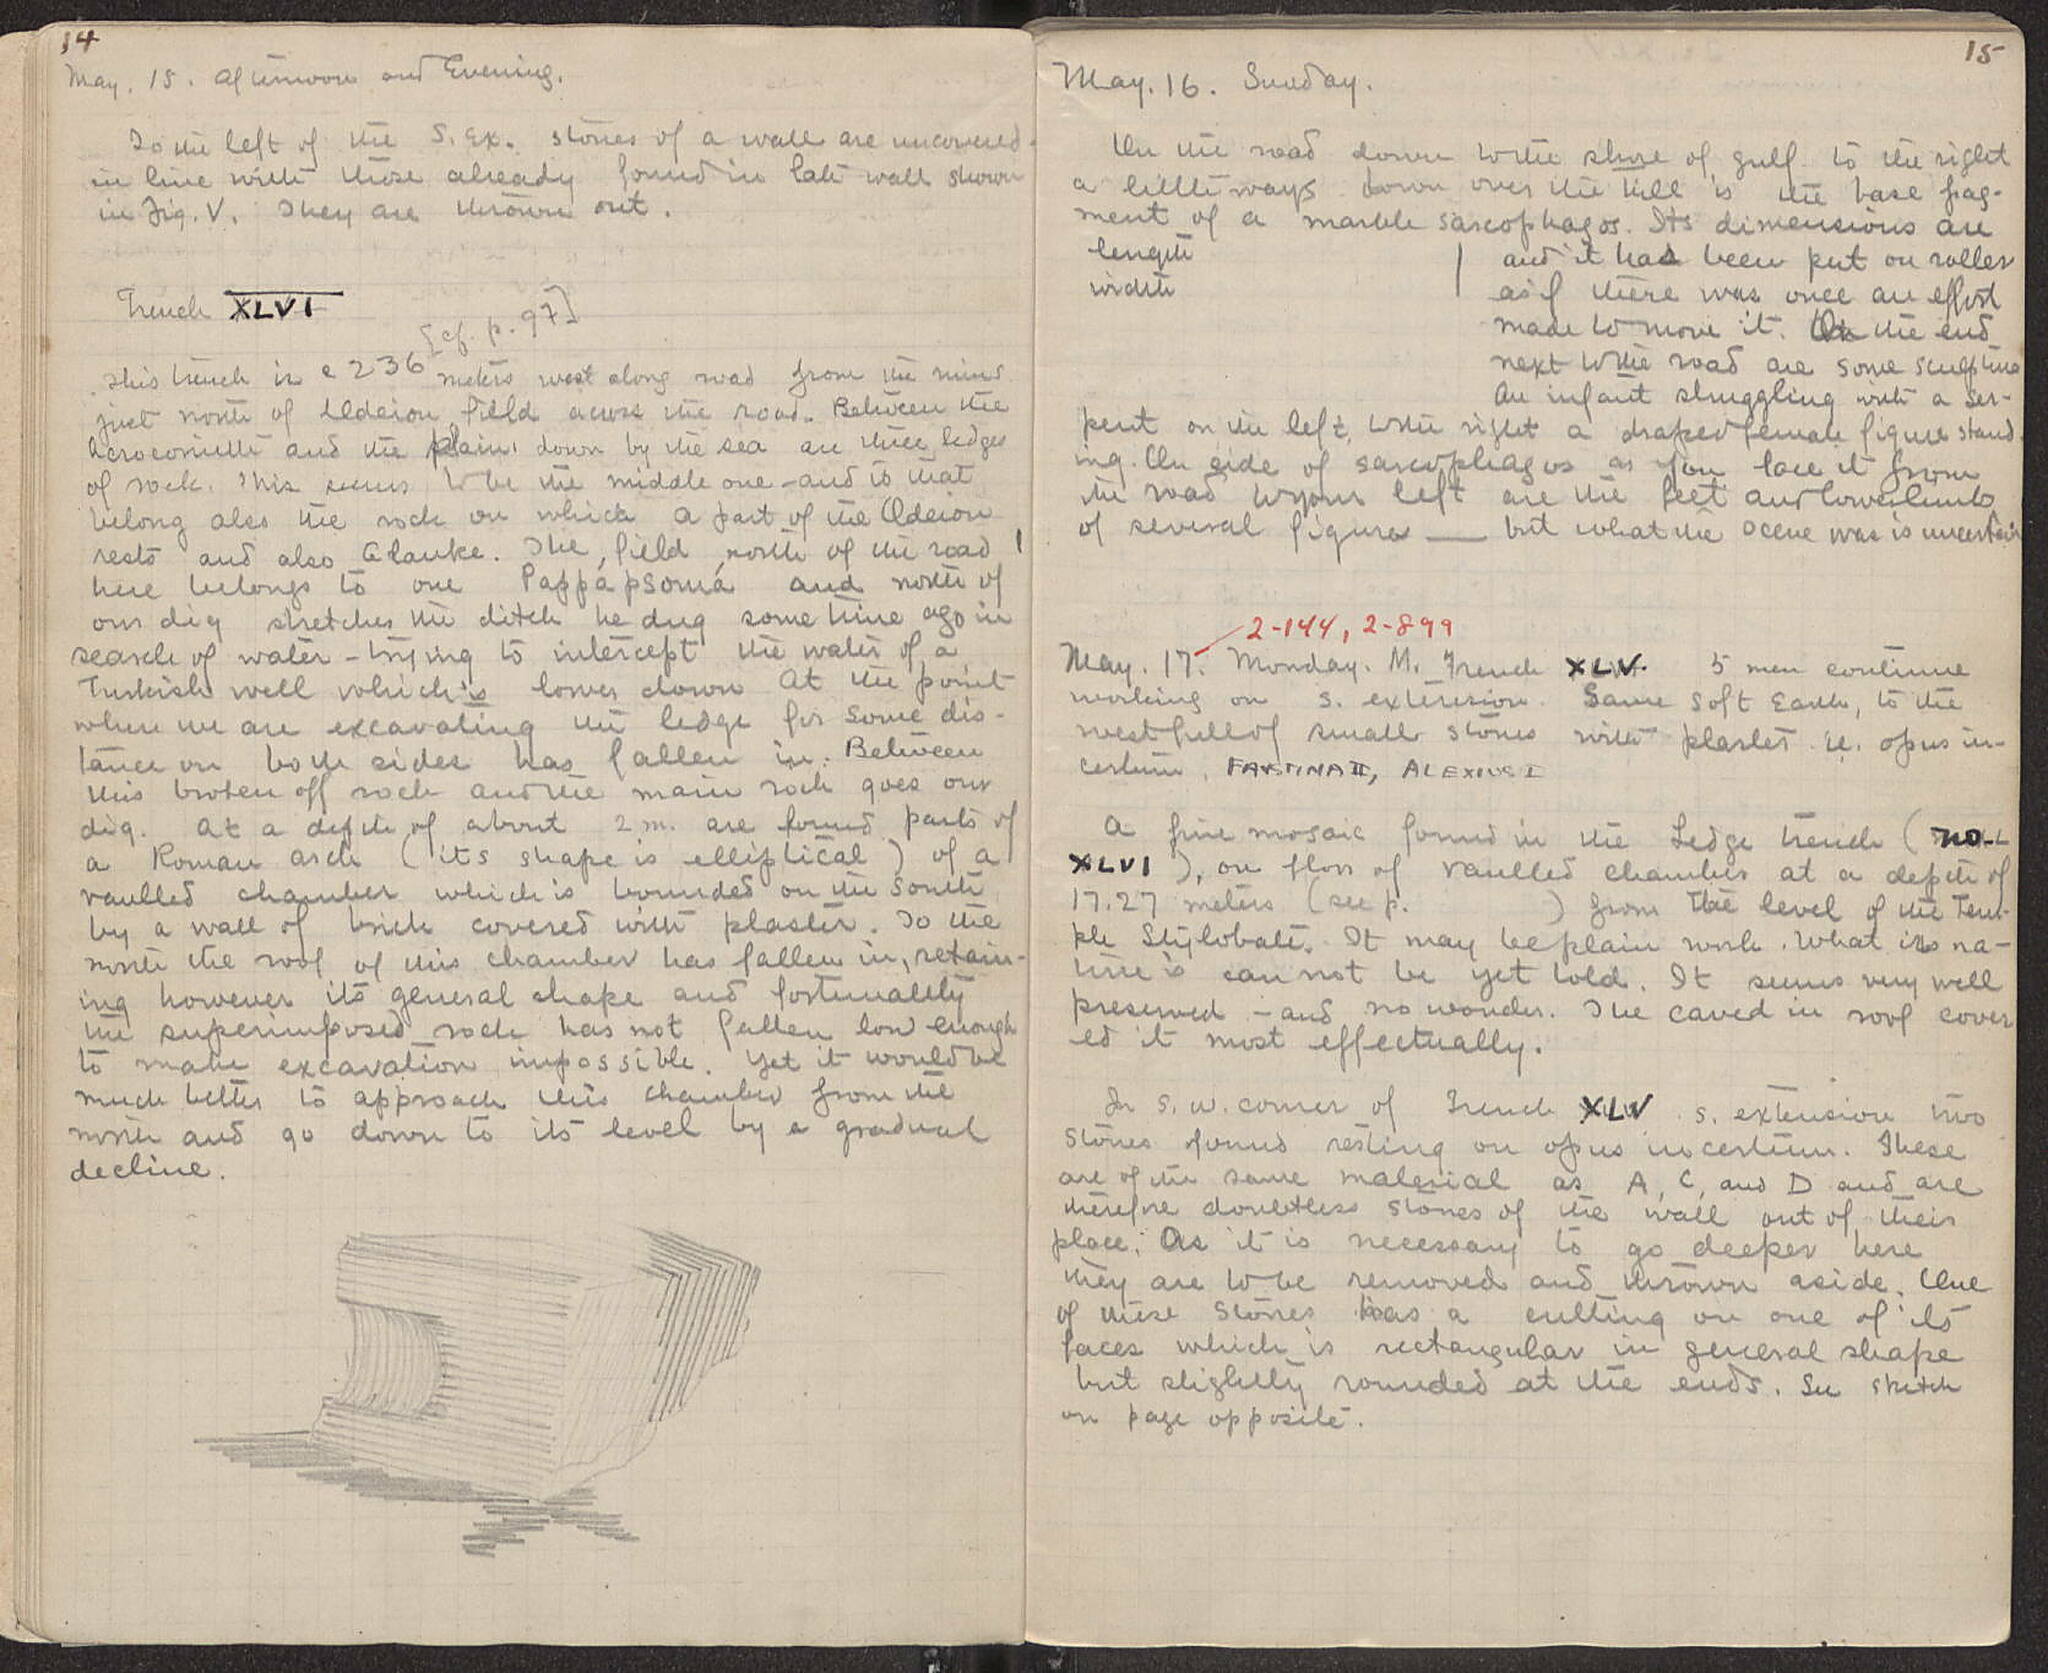 14
May. 15. Afternoon and Evening.
To the left of the S. Ex. stones of a wall are uncovered
in line with those already found in late wall shown
in Fig. V. They are thrown out.
Trench XLVI
[cf. p. 97]
This trench is c 236 meters west along road from the ruins
just north of Odeion field across the road. Between the
Acrocorinth and the plains down by the sea are three ledges
of rock. This seems to be the middle one - and to that
belong also the rock on which a part of the Odeion
rests and also Glauke. The field north of the road
here belongs to one Pappápsomá and north of
our dig stretches the ditch he dug some time ago in
search of water - trying to intercept the water of a
Turkish well which is lower down At the point
where we are excavating the ledge for some dis-
tance on both sides has fallen in. Between
this broken off rock and the main rock goes our
dig. At a depth of about 2 m. are found parts of
a Roman arch (its shape is elliptical) of a
vaulted chamber which is bounded on the south
by a wall of brick covered with plaster. To the
north the roof of this chamber has fallen in, retain-
ing however its general shape and fortunately
the superimposed rock has not fallen low enough
to make excavation impossible. Yet it would be
much better to approach this chamber from the
north and go down to its level by a gradual
decline.
15
May. 16. Sunday.
On the road down to the shore of gulf to the right
a little ways down over the hill is the base frag-
ment of a marble sarcophagos. Its dimensions are
length
width
and it had been put on roller
as if there was once an effort
made to move it. On the end
next to the road are some sculpture
An infant struggling with a ser-
pent on the left, to the right a draped female figure stand-
ing. On side of sarcophagos as you face it from
the road to your left are the feet and lower limbs
of several figures — but what the scene was is uncertain
2-144, 2-899
May. 17. Monday. M. Trench XLV 5 men continue
working on S. extension. Same soft Earth, to the
west full of small stones with plaster i.e. opus in-
certum. FAVSTINA II, ALEXIUS I
A fine mosaic found in the Ledge trench (no.
XLVI), on floor of vaulted chamber at a depth of
17.27 meters (see p. ) from the level of the Tem-
ple Stylobate. It may be plain work. What its na-
ture is can not be yet told. It seems very well
preserved - and no wonder. The caved in roof cover
ed it most effectually.
In S. W. corner of Trench XLV S. extension two
stones found resting on opus incertum. These
are of the same material as A, C, and D and are
therefore doubtless stones of the wall out of their
place. As it is necessary to go deeper here
they are to be removed and thrown aside. One
of these stones has a cutting on one of its
faces which is rectangular in general shape
but slightly rounded at the ends. See sketch
on page opposite.